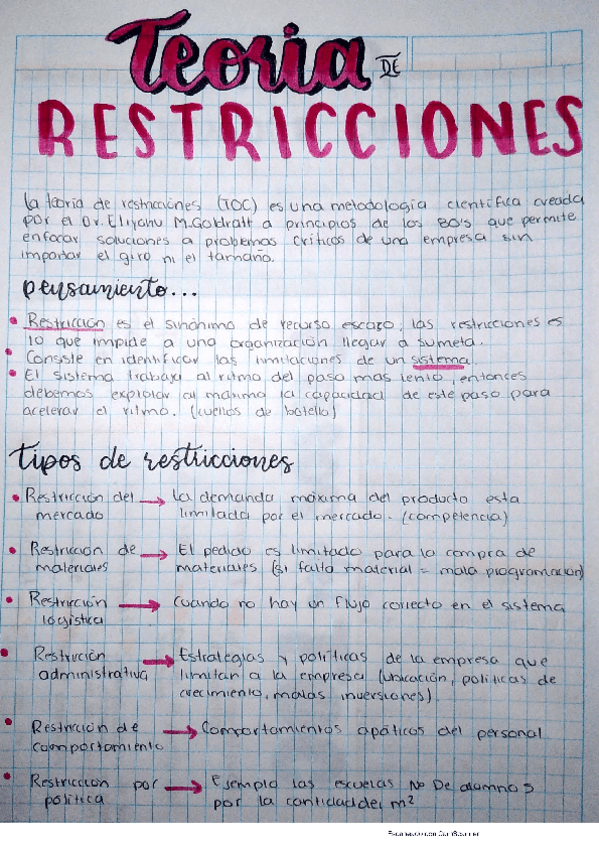 Teoria DE
RESTRICCIONES
La teoria de restricciones (TOC) es una metodologia cientifica creada
por el Dr. Eliyahu M.Goldratt a principios de los 80's que permite
enfocar soluciones a problemas criticos de una empresa sin
importar el giro ni el tamaño.
pensamiento...
• Restricción es el sinónimo de recurso escazo, las restricciones es
lo que impide a una organización llegar a su meta.
• Consiste en identificar las limitaciones de un sistema
• El sistema trabaja al ritmo del paso mas lento, entonces
debemos explotar al máximo la capacidad de este paso para
acelerar el ritmo. (cuellos de botella)
tipos de restricciones
• Restricción del → La demanda máxima del producto esta
mercado limitada por el mercado. (competencia)
• Restricción de → El pedido es limitado para la compra de
materiales materiales (si falta material = mala programación)
• Restricción → Cuando no hay un flujo correcto en el sistema
logistica
• Restricción → Estrategias y políticas de la empresa que
administrativa limitan a la empresa (ubicación, politicas de
crecimiento, malas inversiones).
• Restricción de → Comportamientos apáticos del personal
comportamiento
• Restricción por → Ejemplo las escuelas No De alumnos
política por la cantidad de m²
Escaneado con CamScanner